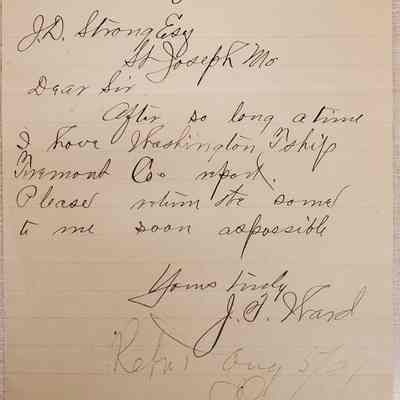 J.D. Strong Esq
St Joseph Mo
Dear Sir
After so long a time
I have Washington Tship
Fremont Co report.
Please return the same
to me soon aspossible
Yours truly
J. F. Ward
Aug